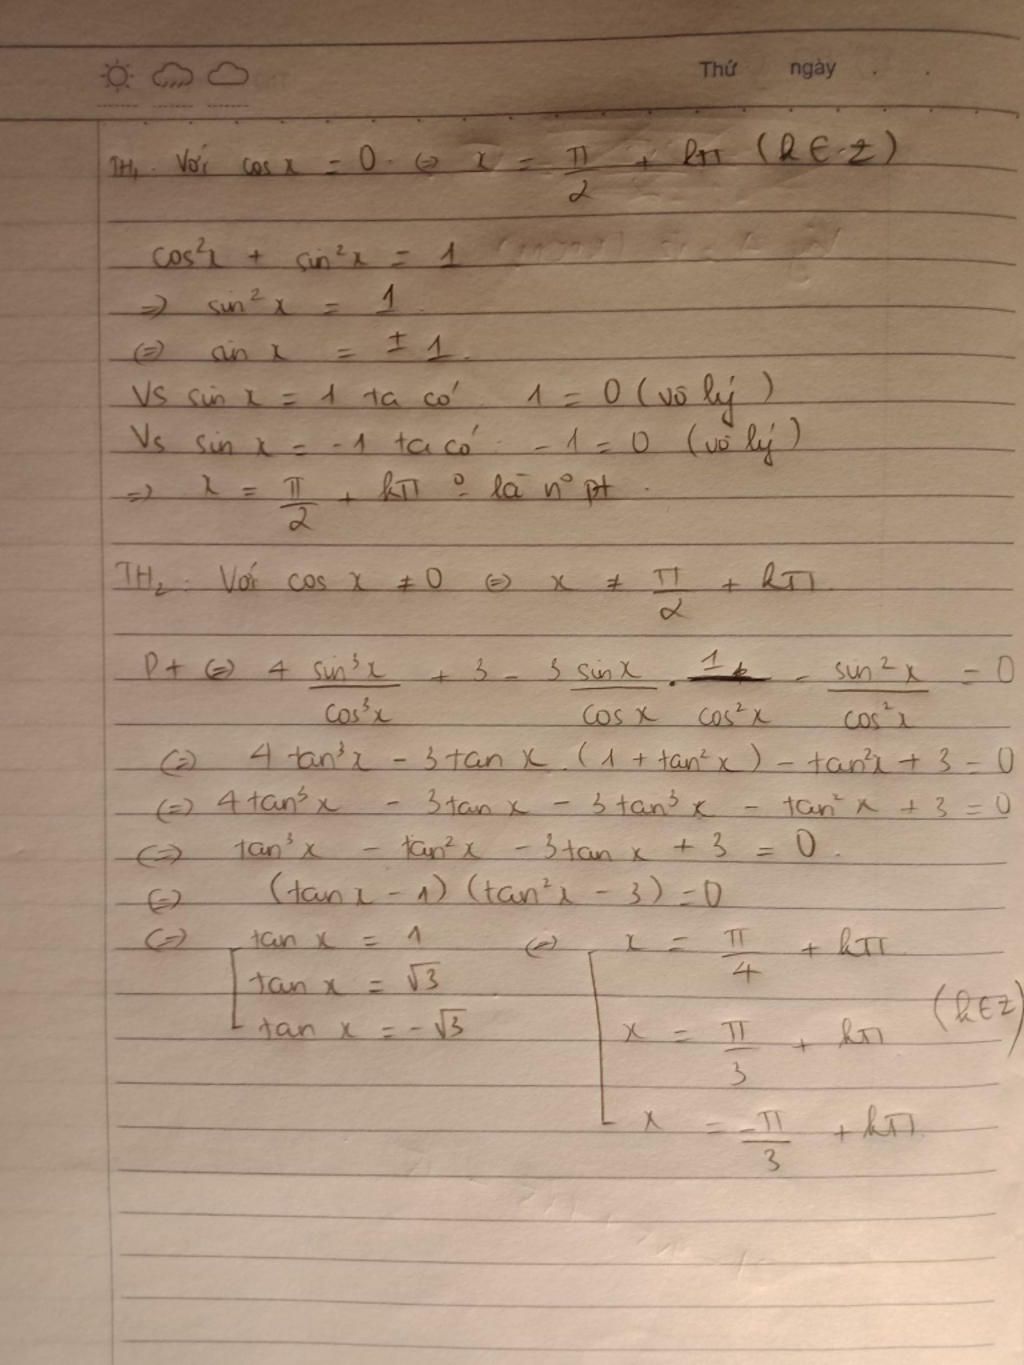 Thứ ngày
TH₁. Với cos x = 0 ⇔ x = π/2 + kπ (k ∈ Z)
cos²x + sin²x = 1
⇒ sin²x = 1
⇔ sin x = ±1.
Vs sin x = 1 ta có 1 = 0 (vô lý)
Vs sin x = -1 ta có: -1 = 0 (vô lý)
⇒ x = π/2 + kπ là n° pt.
TH₂. Với cos x ≠ 0 ⇔ x ≠ π/2 + kπ
Pt ⇔ 4 sin³x/cos³x + 3 - 3 sin x/cos x . 1/cos²x - sin²x/cos²x = 0
⇔ 4tan³x - 3tan x . (1 + tan²x) - tan²x + 3 = 0
⇔ 4tan³x - 3tan x - 3tan³x - tan²x + 3 = 0
⇔ tan³x - tan²x - 3tan x + 3 = 0.
⇔ (tan x - 1) (tan²x - 3) = 0
⇔ [ tan x = 1 ⇔ [ x = π/4 + kπ
tan x = √3
tan x = -√3 x = π/3 + kπ (k ∈ Z)
x = -π/3 + kπ.